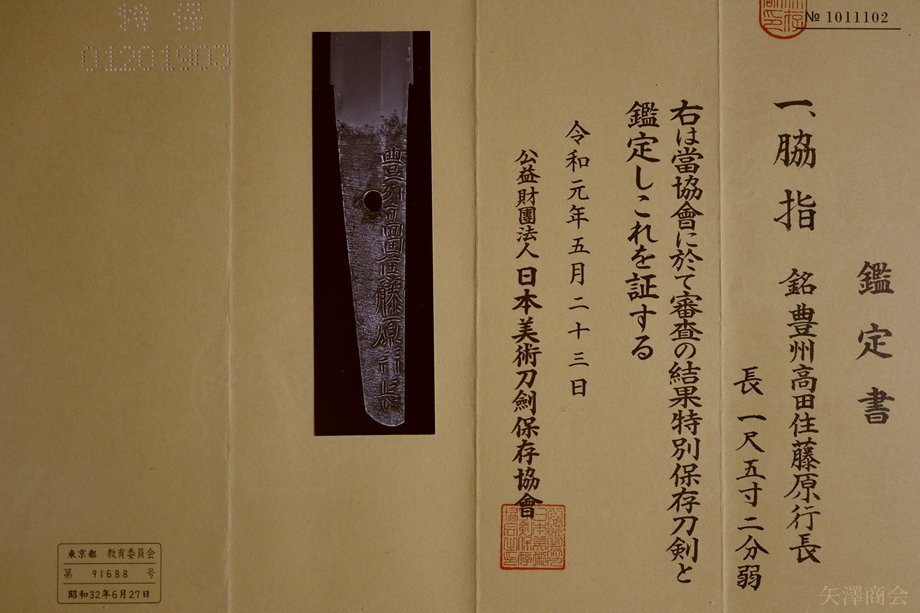 № 1011102
鑑定書
一、脇指 銘 豊州高田住藤原行長
長 一尺五寸二分弱
右は當協會に於て審査の結果特別保存刀剣と
鑑定しこれを証する
令和元年五月二十三日
公益財團法人 日本美術刀劍保存協會
豊州高田住藤原行長
特保
01201903
東京都 教育委員会
第 91688 号
昭和32年6月27日
矢澤商会